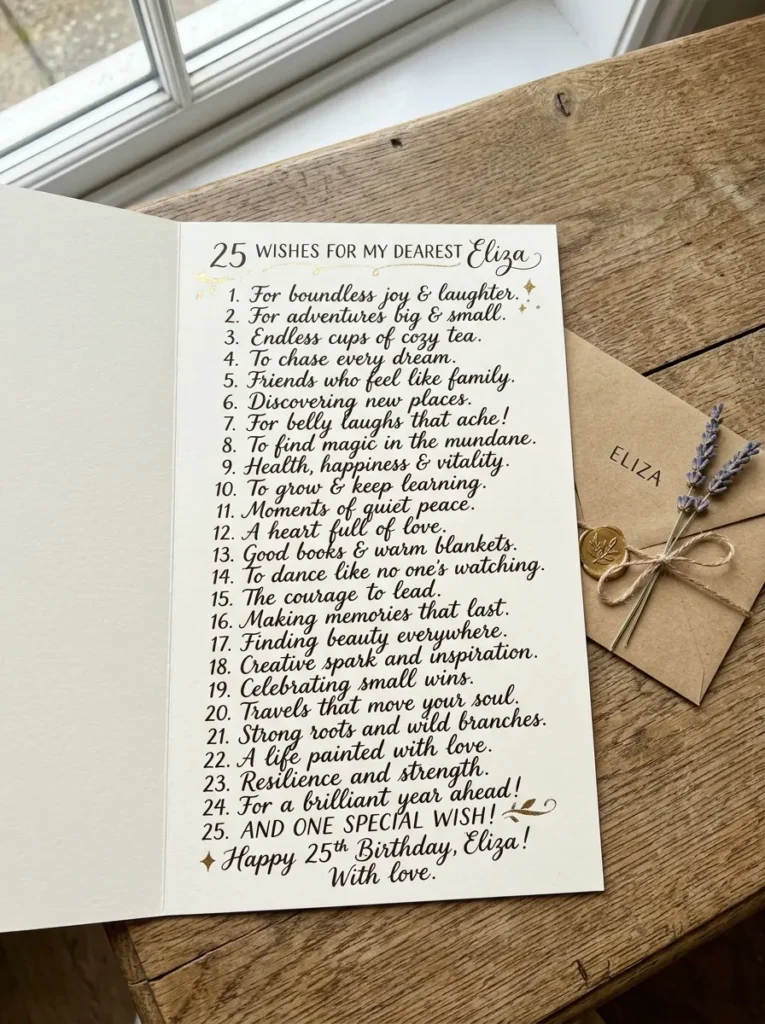 25 WISHES FOR MY DEAREST Eliza
1. For boundless joy & laughter.
2. For adventures big & small.
3. Endless cups of cozy tea.
4. To chase every dream.
5. Friends who feel like family.
6. Discovering new places.
7. For belly laughs that ache!
8. To find magic in the mundane.
9. Health, happiness & vitality.
10. To grow & keep learning.
11. Moments of quiet peace.
12. A heart full of love.
13. Good books & warm blankets.
14. To dance like no one's watching.
15. The courage to lead.
16. Making memories that last.
17. Finding beauty everywhere.
18. Creative spark and inspiration.
19. Celebrating small wins.
20. Travels that move your soul.
21. Strong roots and wild branches.
22. A life painted with love.
23. Resilience and strength.
24. For a brilliant year ahead!
25. AND ONE SPECIAL WISH!
Happy 25th Birthday, Eliza!
With love.
ELIZA